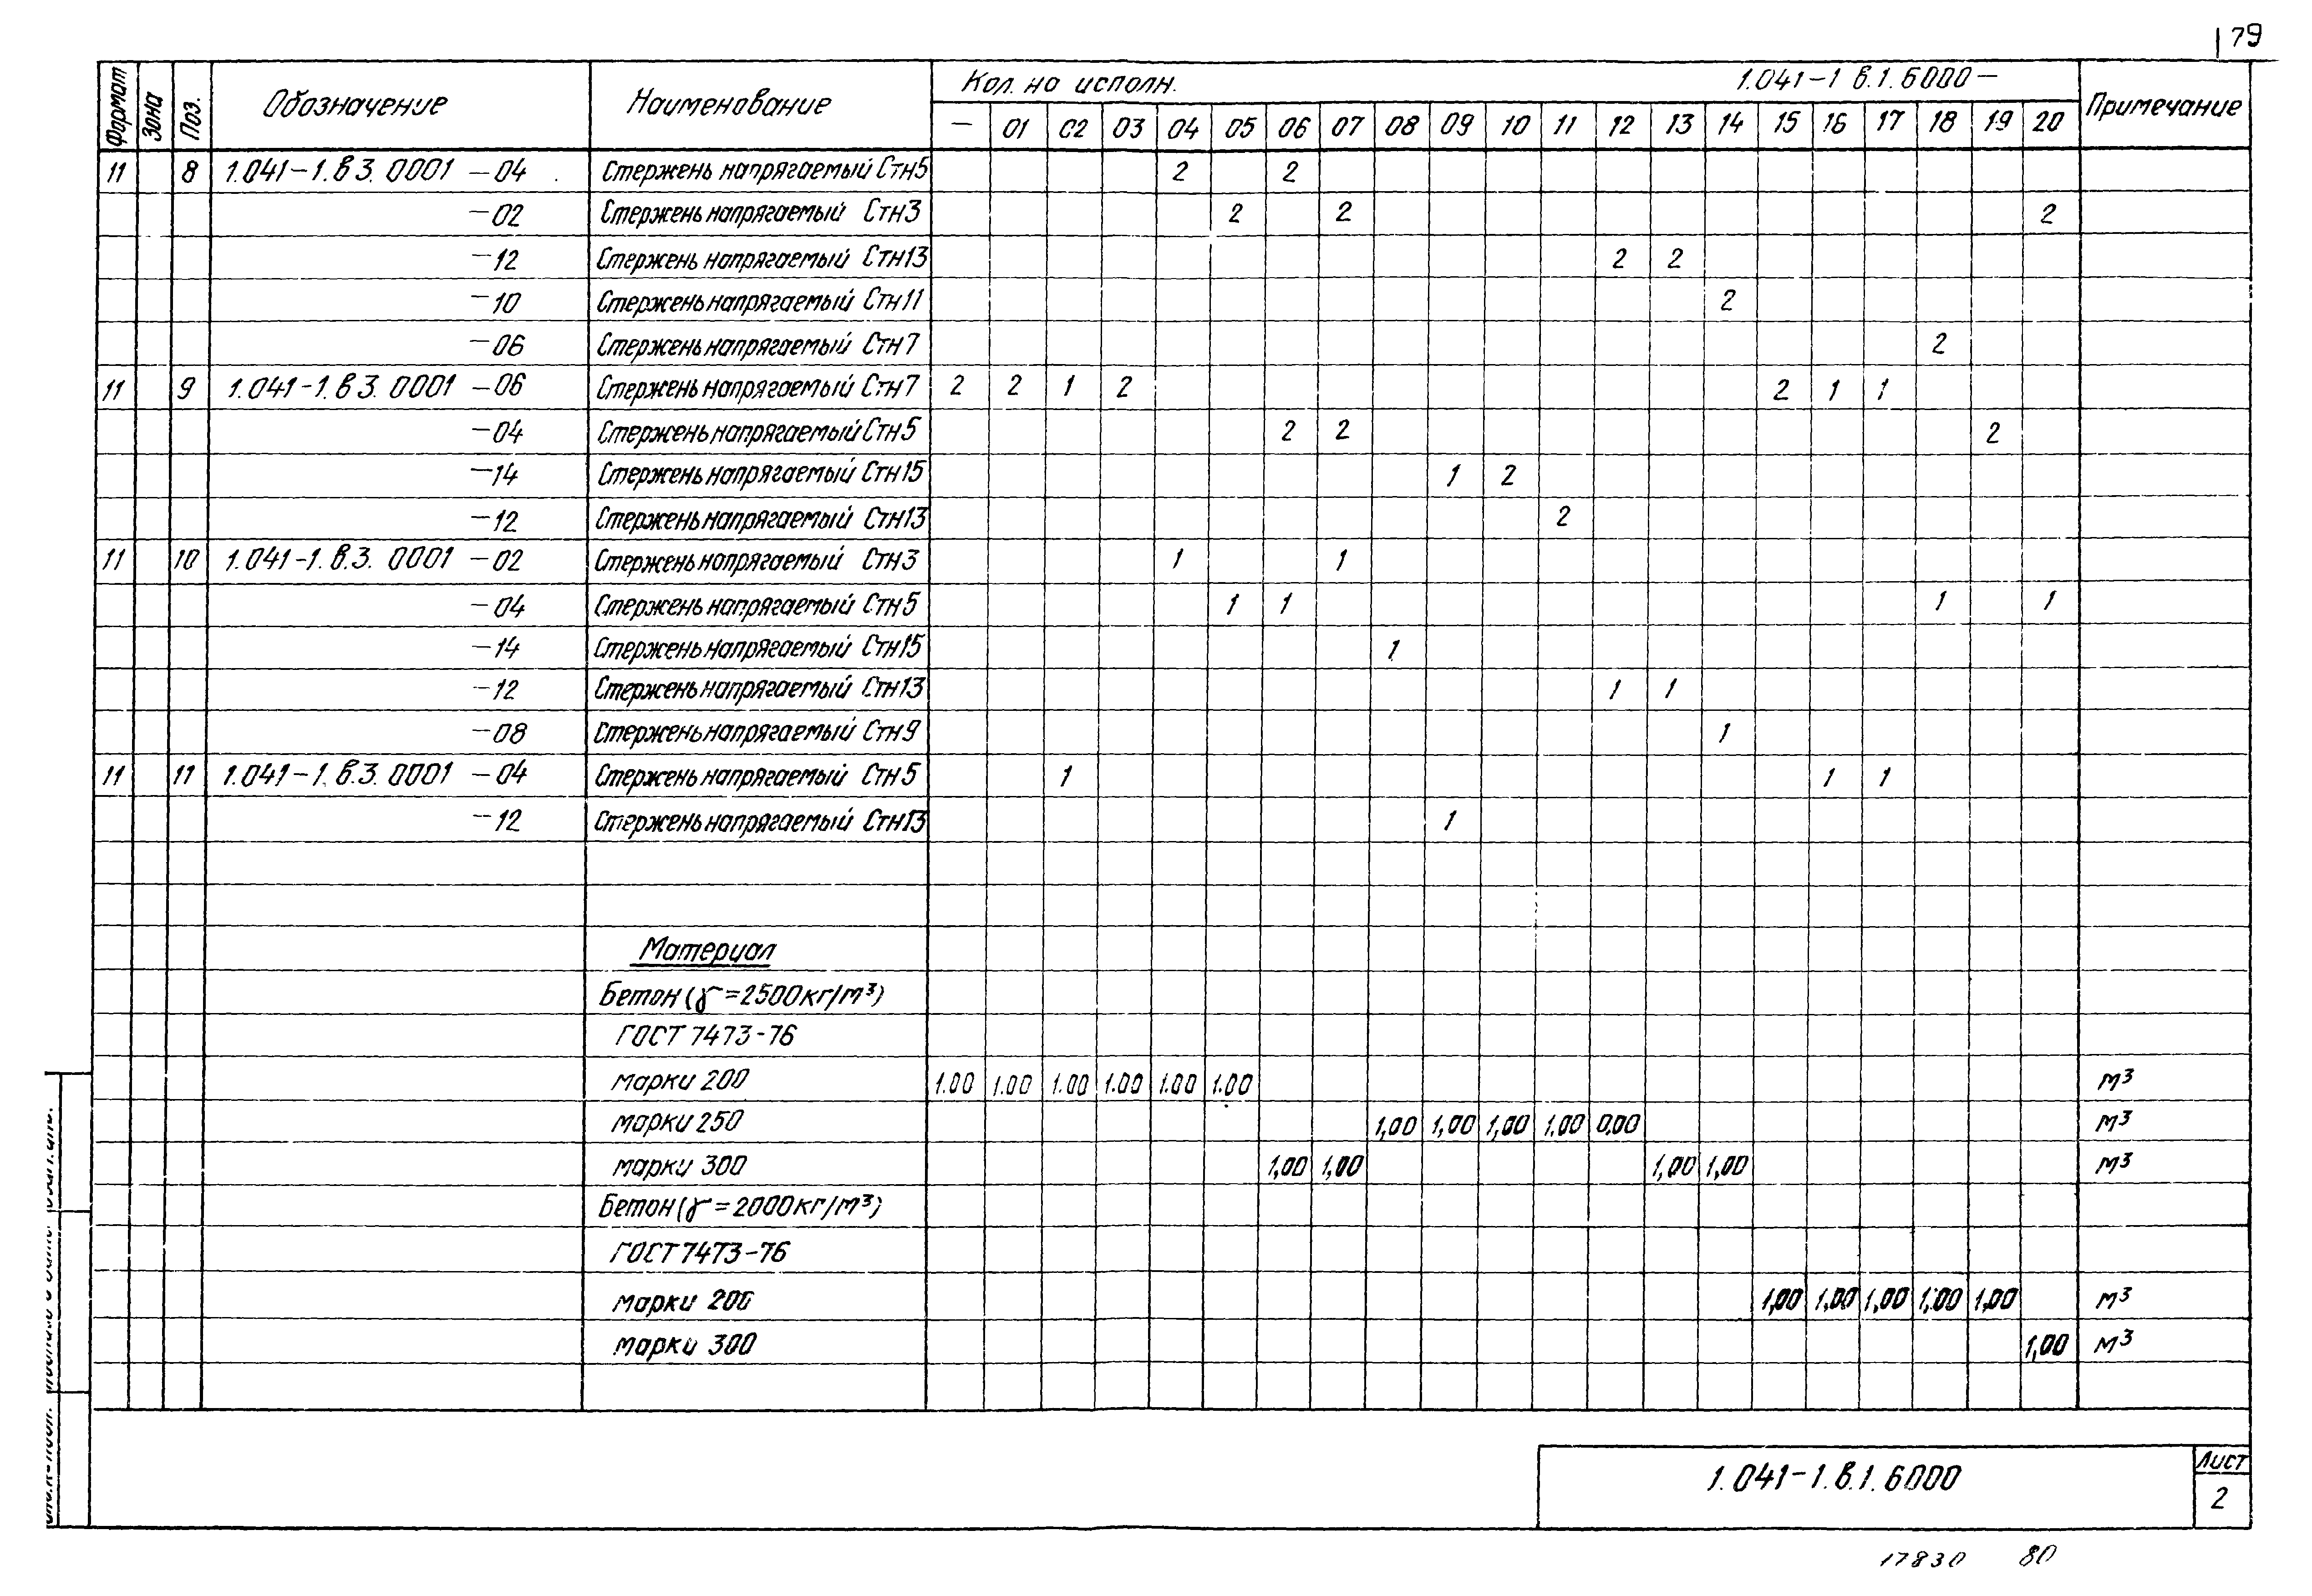 179
Формат Зона Поз. Обозначение Наименование Кол. на исполн. 1.041-1 в.1.6000- Примечание
— 01 02 03 04 05 06 07 08 09 10 11 12 13 14 15 16 17 18 19 20
11 8 1.041-1.в3.0001 -04 Стержень напрягаемый Стн5 2 2
-02 Стержень напрягаемый Стн3 2 2 2
-12 Стержень напрягаемый Стн13 2 2
-10 Стержень напрягаемый Стн11 2
-06 Стержень напрягаемый Стн7 2
11 9 1.041-1.в3.0001 -06 Стержень напрягаемый Стн7 2 2 1 2 2 1 1
-04 Стержень напрягаемый Стн5 2 2 2
-14 Стержень напрягаемый Стн15 1 2
-12 Стержень напрягаемый Стн13 2
11 10 1.041-1.в.3.0001 -02 Стержень напрягаемый Стн3 1 1
-04 Стержень напрягаемый Стн5 1 1 1 1
-14 Стержень напрягаемый Стн15 1
-12 Стержень напрягаемый Стн13 1 1
-08 Стержень напрягаемый Стн9 1
11 11 1.041-1.в.3.0001 -04 Стержень напрягаемый Стн5 1 1 1
-12 Стержень напрягаемый Стн13 1
Материал
Бетон (γ=2500кг/м³)
ГОСТ 7473-76
марки 200 1.00 1.00 1.00 1.00 1.00 1.00 м³
марки 250 1,00 1,00 1,00 1.00 0,00 м³
марки 300 1,00 1,00 1,00 1,00 м³
Бетон (γ=2000кг/м³)
ГОСТ 7473-76
марки 200 1,00 1,00 1,00 1,00 1,00 м³
марки 300 1,00 м³
1.041-1.в.1.6000
Лист
2
17830 80